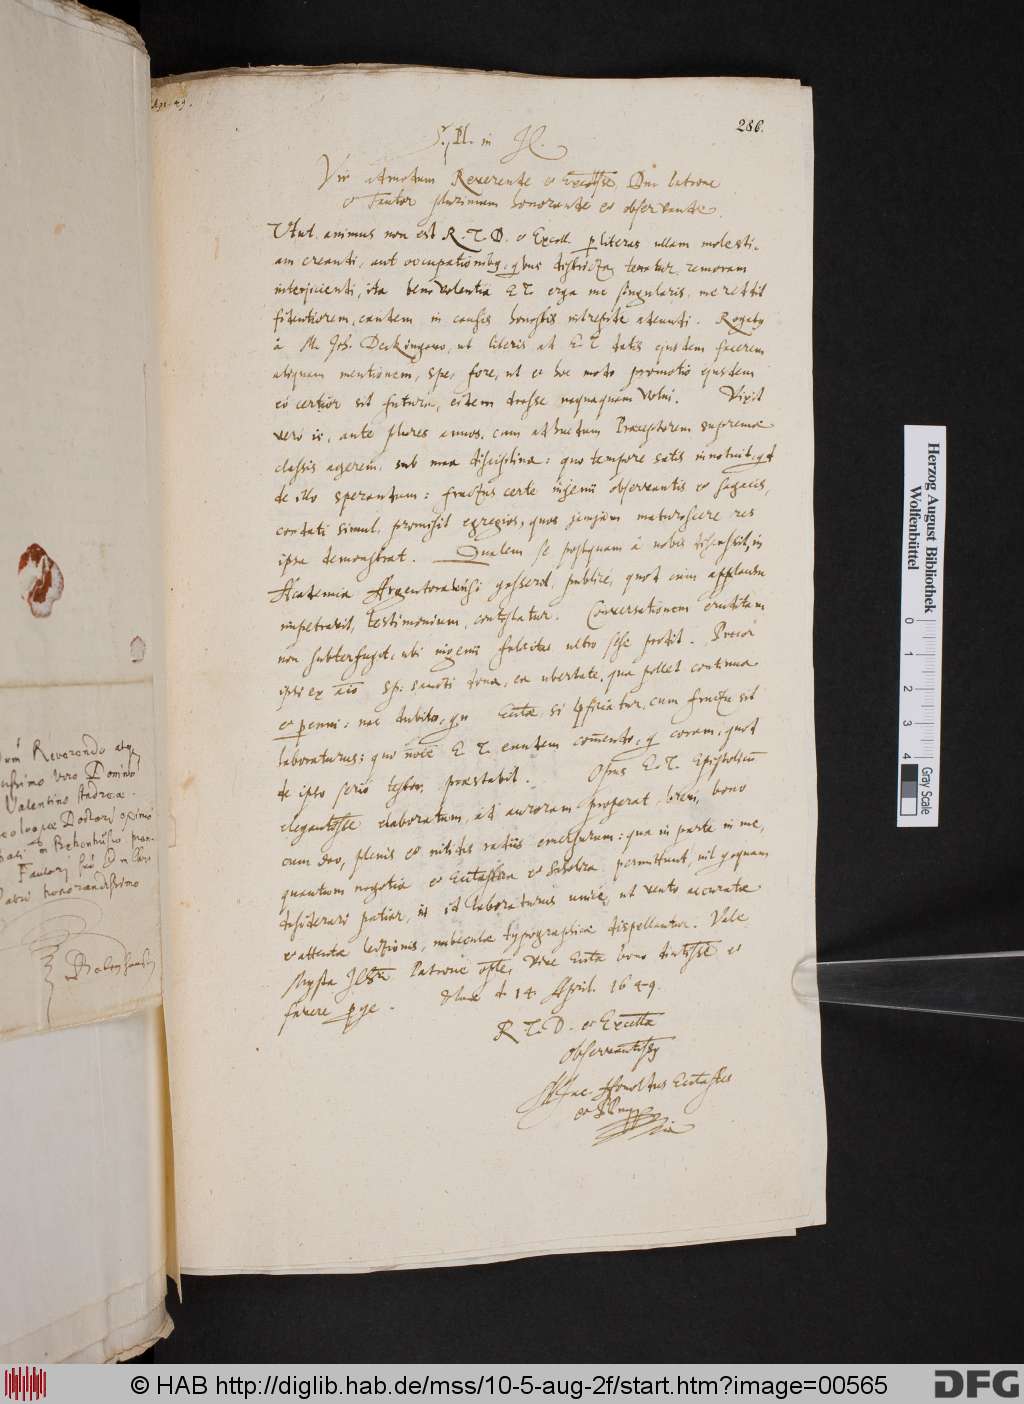 286.
S. Pl. in
Vir admodum Reverende et Excell.sse, Dne Patrone
et Fautor plurimum honorande et observande.
Uti animus non est R. T. D. et Excell. p literas ullam molesti-
am creandi, aut occupationibq, qbus districta tenetur, remoram
interjiciendi, ita benevolentia E T. erga me singularis, me reddit
fidentiorem, eandem in causis honestis intrepide adeundi. Rogatq
à M. Joh. Deckingero, ut literis ad E T datis ejusdem facerem
aliquam mentionem, spe, fore, ut et hoc modo promotio ejusdem
eò certior sit futura, eidem deesse naquaquam volui. Vixit
vero is, ante plures annos, cum adhuc dum Praeceptorem supremae
classis agerem, sub mea disciplina: quo tempore satis innotuit, qd
de illo sperandum: fructus certe ingenii observantis et sagacis,
cordati simul, promisit egregios, quos jamjam maturescere res
ipsa demonstrat. Qualem se postquam à nobis discessit, in
Academia Argentoratensi gesserit, publicè, quod cum applausu
impetravit, testimonium, contestatur. Conversationem eruditam
non subterfugit, ubi ingenii felicitas ultro sese prodit. Precor
ipsi ex aio sp: sancti dona, ea ubertate, qua pollet continua
et perenni: nec dubito, qn Ecclae, si pficiatur, cum fructu sit
laboraturus: quo noie E. T. eundem comendo, q coram, quod
de ipso serio testor, praestabit. Opus E. T. Epistolicu
elegantisse elaboratum, ad auroram properat, brevi, bono
cum Deo, plenis et nitidis radiis emersurum: qua in parte in me,
quantum negotia et Ecclastica et Scholica permittunt, nil qcquam
desiderari patiar, id laboraturus unice, ut vento accuratae
et attentae lectionis, nubeculae typographicae dispellantur. Vale
Mysta JEsu Patrone opte, vive Eccla bono diutisse et
favere pge. d. 14. April. 1649.
R. T. D. et Excellae
observantissq
Ecclastes
Herzog August Bibliothek
Wolfenbüttel
0 1 2 3 4
Gray Scale
Reverendo atq
vero Domino
Valentino Andreae
Doctori
in Bebenhusio
Fautori
honorandissimo
Bebenhausen
© HAB http://diglib.hab.de/mss/10-5-aug-2f/start.htm?image=00565
DFG